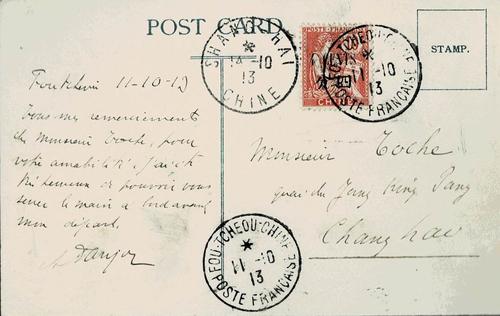 POST CARD
SHANG-HAI
14 -10
13
CHINE
POSTE FRANÇAISE
11 -10
13
CHINE
STAMP.
11-10-13
Tous mes remerciements
cher Monsieur Toche, pour
votre amabilité. J'ai été
heureux de pouvoir vous
serrer la main à bord avant
mon départ.
Monsieur Toche
quai du Yang King Pang
Changhai
FOU-TCHEOU-CHINE
11 -10
13
POSTE FRANÇAISE